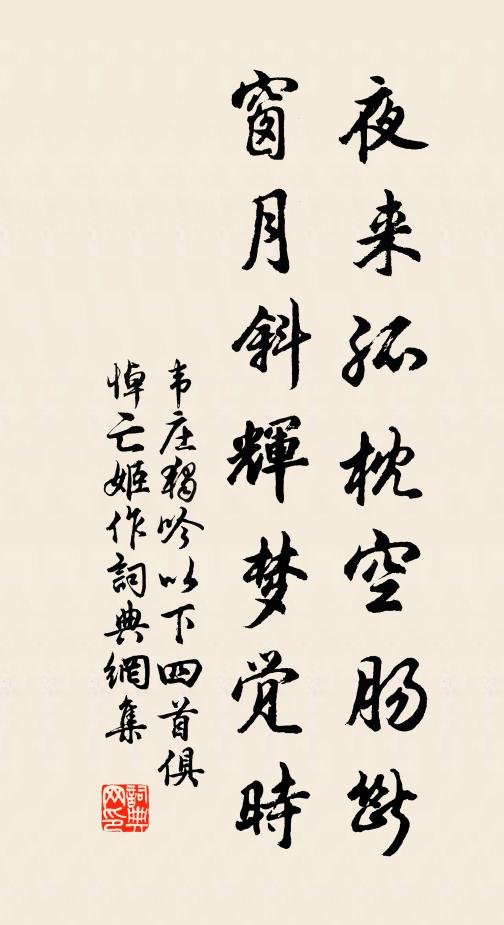 夜来孤枕空肠断
窗月斜輝梦觉時
韦庄獨吟以下四首俱
悼亡姬作詞典網集
詞典
网印